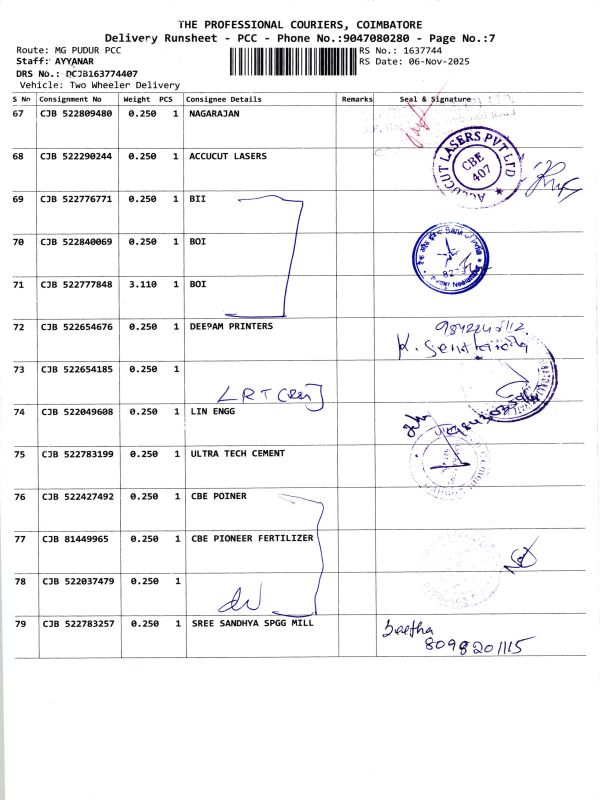 THE PROFESSIONAL COURIERS, COIMBATORE
Delivery Runsheet - PCC - Phone No.:9047080280 - Page No.:7
Route: MG PUDUR PCC RS No.: 1637744
Staff: AYYANAR RS Date: 06-Nov-2025
DRS No.: DCJB163774407
Vehicle: Two Wheeler Delivery
S No Consignment No Weight PCS Consignee Details Remarks Seal & Signature
67 CJB 522809480 0.250 1 NAGARAJAN
68 CJB 522290244 0.250 1 ACCUCUT LASERS
ACCUCUT LASERS PVT LTD
CBE
407
69 CJB 522776771 0.250 1 BII
70 CJB 522840069 0.250 1 BOI
Bank of India
71 CJB 522777848 3.110 1 BOI
72 CJB 522654676 0.250 1 DEEPAM PRINTERS
73 CJB 522654185 0.250 1
74 CJB 522049608 0.250 1 LIN ENGG
75 CJB 522783199 0.250 1 ULTRA TECH CEMENT
76 CJB 522427492 0.250 1 CBE POINER
77 CJB 81449965 0.250 1 CBE PIONEER FERTILIZER
78 CJB 522037479 0.250 1
79 CJB 522783257 0.250 1 SREE SANDHYA SPGG MILL
8098201115